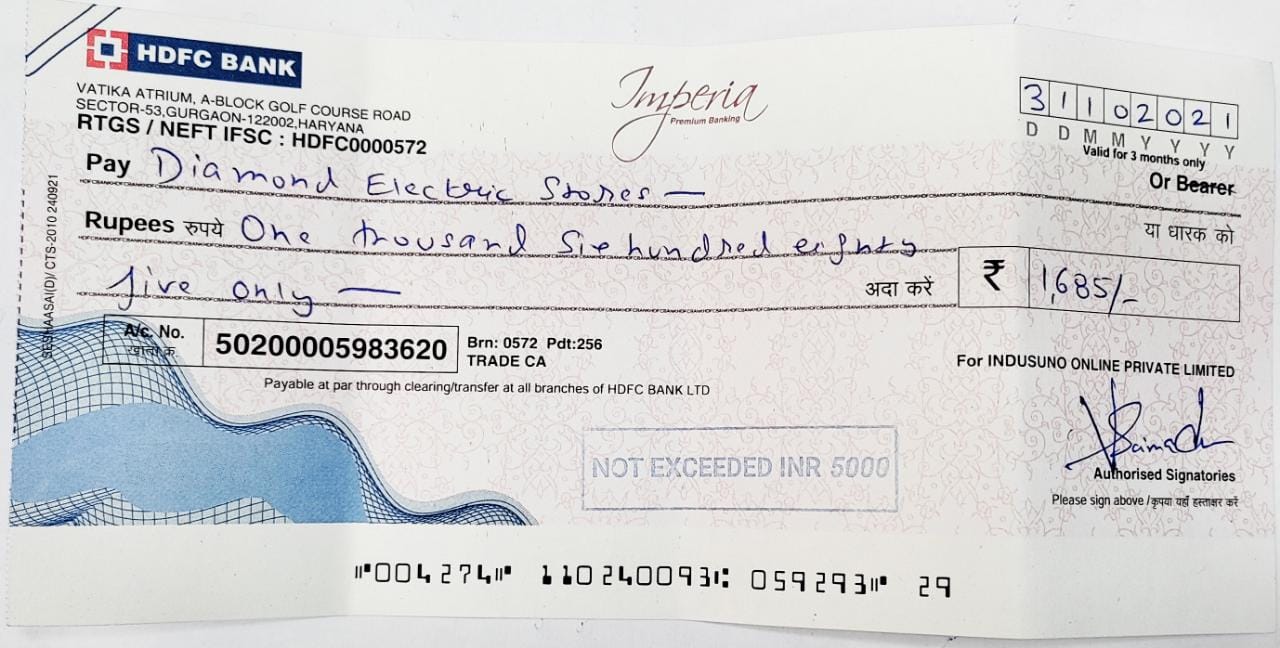 HDFC BANK
VATIKA ATRIUM, A-BLOCK GOLF COURSE ROAD
SECTOR-53,GURGAON-122002,HARYANA
RTGS / NEFT IFSC : HDFC0000572
Imperia
Premium Banking
3 1 1 0 2 0 2 1
D D M M Y Y Y Y
Valid for 3 months only
Pay Diamond Electric Stores —
Or Bearer
या धारक को
Rupees रुपये One thousand Six hundred eighty
five only —
अदा करें ₹ 1,685/-
A/c. No.
खाता क्र.
50200005983620
Brn: 0572 Pdt:256
TRADE CA
Payable at par through clearing/transfer at all branches of HDFC BANK LTD
For INDUSUNO ONLINE PRIVATE LIMITED
NOT EXCEEDED INR 5000
Authorised Signatories
Please sign above / कृपया यहाँ हस्ताक्षर करें
CTS-2010 240921
⑈004274⑈ 110240093⑆ 059293⑈ 29